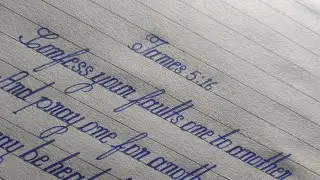 James 5:16
Confess your faults one to another
And pray one for another
may be heal